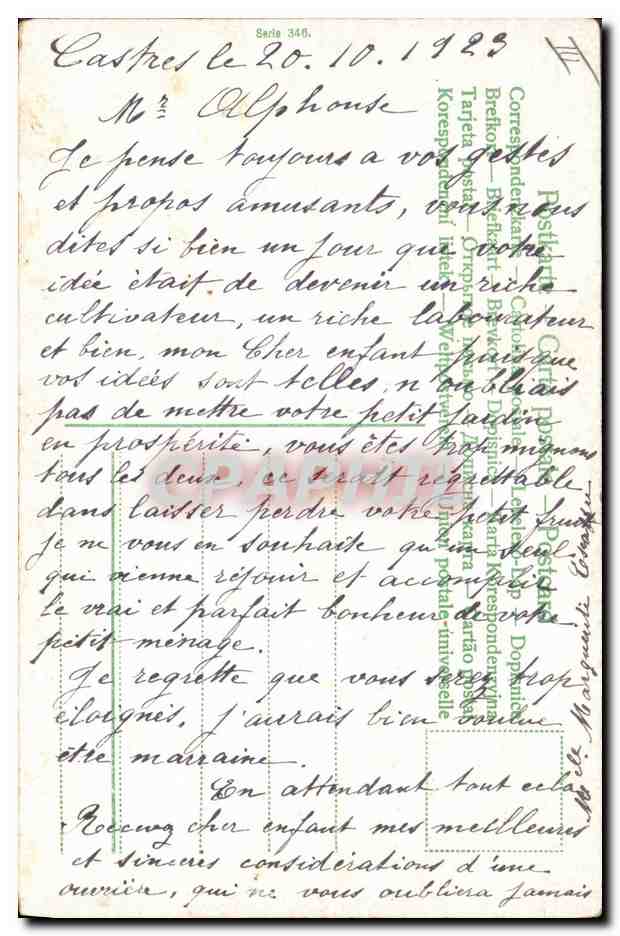 Serie 346.
Castres le 20. 10. 1923
III
Mr Alphonse
Je pense toujours a vos gestes
et propos amusants, vous nous
dites si bien un jour que votre
idée était de devenir un riche
cultivateur, un riche laboureur
et bien, mon Cher enfant puisque
vos idées sont telles, n'oubliais
pas de mettre votre petit jardin
en prospérité, vous êtes trop mignons
tous les deux, ce serait regrettable
dans laisser perdre votre petit fruit
je ne vous en souhaite qu'un seul
qui vienne réjouir et accomplir
le vrai et parfait bonheur de votre
petit ménage.
Je regrette que vous serez trop
éloignés, j'aurais bien voulue
être marraine.
En attendant tout cela
Recevez cher enfant mes meilleures
et sincères considérations d'une
ouvrière, qui ne vous oubliera jamais
Melle Marguerite
Postkarte — Carte postale — Postcard
Correspondenzkart — Dopisnice
Brefkort — Briefkaart — Brevkort — Dopisnica — Karta Korespondencyjna
Tarjeta postal — Открытое письмо — Cartão postal
Korespondenční lístek — Weltpostverein — Union postale universelle
CPAPHIL